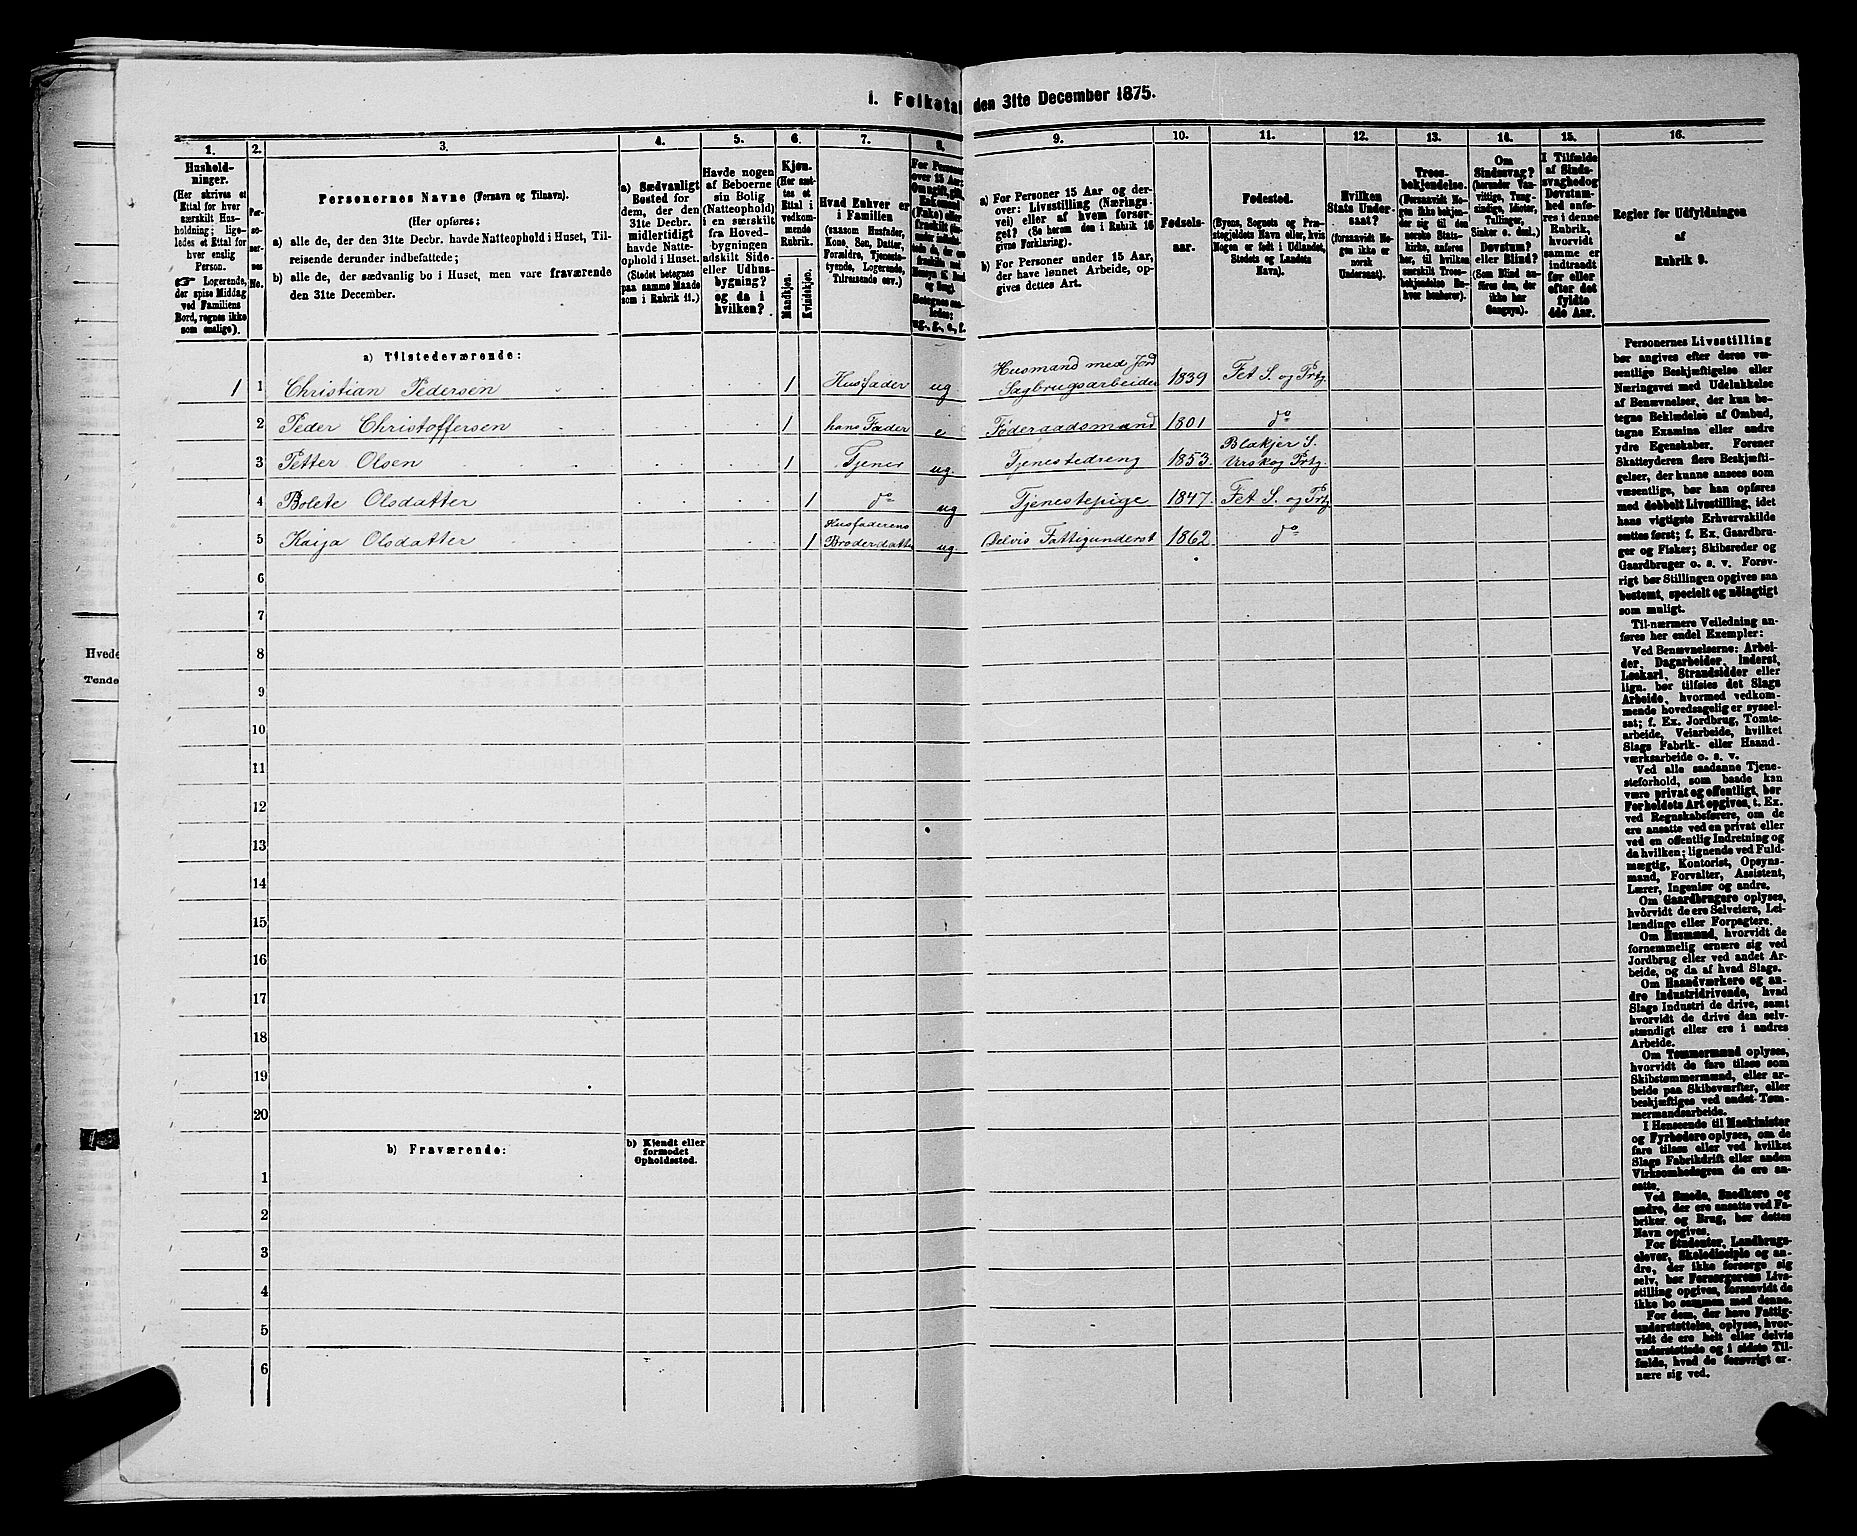 I. Folketal den 31te December 1875.
1.
2.
3.
4.
5.
6.
7.
8.
9.
10.
11.
12.
13.
14.
15.
16.
Hushold-
ninger.
(Her skrives et
Ettal for hver
særskilt Hus-
holdning; lige-
ledes et Ettal for
hver enslig
Person.
☞ Logerende,
der spise Middag
ved Familiens
Bord, regnes ikke
som enslige).
Per-
so-
ner-
nes
No.
Personernes Navne (Fornavn og Tilnavn).
(Her opføres:
a) alle de, der den 31te Decbr. havde Natteophold i Huset, Til-
reisende derunder indbefattede;
b) alle de, der sædvanlig bo i Huset, men vare fraværende
den 31te December.
a) Sædvanligt
Bosted for
dem, der den
31te Decbr.
midlertidigt
havde Natte-
ophold i Huset.
(Stedet betegnes
paa samme Maade
som i Rubrik 11.)
Havde nogen
af Beboerne
sin Bolig
(Natteophold)
i en særskilt
fra Hoved-
bygningen
adskilt Side-
eller Udhus-
bygning?
og da i
hvilken?
Kjøn.
(Her sæt-
tes et
Ettal i
vedkom-
mende
Rubrik.
Mandkjøn.
Kvindekjøn.
Hvad Enhver er
i Familien
(saasom Husfader,
Kone, Søn, Datter,
Forældre, Tjeneste-
tyende, Logerende,
Tilreisende osv.)
For Personer
over 15 Aar:
ug., g., e., f.
a) For Personer 15 Aar og der-
over: Livsstilling (Nærings-
vei) eller af hvem forsør-
get? (Se herom den i Rubrik 16
givne Forklaring).
b) For Personer under 15 Aar,
der have lønnet Arbeide, op-
gives dettes Art.
Fødsels-
aar.
Fødested.
(Byens, Sognets og Præ-
stegjeldets Navn eller, hvis
Nogen er født i Udlandet,
Stedets og Landets
Navn).
Hvilken
Stats Under-
saat?
(forsaavidt No-
gen ikke er
norsk
Undersaat).
Troes-
bekjendelse.
(Forsaavidt No-
gen ikke bekjen-
der sig til den
norske Stats-
kirke, anføres
her, til hvilken
særskilt Troes-
bekjendelse En-
hver henhører).
Om
Sindssvag?
(herunder Van-
vittige, Tung-
sindige, Idioter,
Tullinger,
Sinker o. desl.)
Døvstum?
eller Blind?
(Som Blind an-
føres den, der
ikke har
Gangsyn).
I Tilfælde
af Sinds-
svaghed og
Døvstum-
hed anfø-
res i denne
Rubrik,
hvorvidt
samme er
indtraadt
før eller
efter det
fyldte
4de Aar.
Regler for Udfyldningen
af
Rubrik 9.
a) Tilstedeværende:
1 1 Christian Pedersen 1 Husfader ug. Husmand med Jord
Sagbrugsarbeider 1839 Fet S. og Prtg.
2 Peder Christoffersen 1 hans Fader e Føderaadsmand 1801 do
3 Petter Olsen 1 Tjener ug. Tjenestedreng 1853. Blakjer S.
Urskog Prtg.
4 Bolete Olsdatter 1 do ug Tjenestepige 1847. Fet S. og Prtg
5 Kaija Olsdatter 1 Husfaderens
Broderdatter ug. Delvis Fattigunderst 1862. do
6
7
8
9
10
11
12
13
14
15
16
17
18
19
20
b) Fraværende:
b) Kjendt eller
formodet
Opholdssted.
1
2
3
4
5
6
Personernes Livsstilling
bør angives efter deres væ-
sentlige Beskjæftigelse eller
Næringsvei med Udelukkelse
af Benævnelser, der kun be-
tegne Beklædelse af Ombud,
tagne Examina eller andre
ydre Egenskaber. Forener
Skatteyderen flere Beskjæfti-
gelser, der kunne ansees som
væsentlige, bør han opføres
med dobbelt Livsstilling, idet
hans vigtigste Erhvervskilde
sættes først; f. Ex. Gaardbru-
ger og Fisker; Skibsreder og
Gaardbruger o. s. v. Forøv-
rigt bør Stillingen opgives saa
bestemt, specielt og nöiagtigt
som muligt.
Til nærmere Veiledning an-
føres her endel Exempler:
Ved Benævnelserne: Arbei-
der, Dagarbeider, Inderst,
Løskarl, Strandsidder eller
lign. bør tilføies det Slags
Arbeide, hvormed vedkom-
mende hovedsagelig er syssel-
sat; f. Ex. Jordbrug, Tomte-
arbeide, Veiarbeide, hvilket
Slags Fabrik- eller Haand-
værksarbeide o. s. v.
Ved alle saadanne Tjene-
steforhold, som baade kan
være privat og offentligt, bør
Forholdets Art opgives, t. Ex.
ved Regnskabsførere, om de
ere ansatte ved en privat eller
ved en offentlig Indretning og
da hvilken; lignende ved Fuld-
mægtig, Kontorist, Opsyns-
mand, Forvalter, Assistent,
Lærer, Ingeniør og andre.
Om Gaardbrugere oplyses,
hvorvidt de ere Selveiere, Lei-
lændinge eller Forpagtere.
Om Husmænd, hvorvidt de
fornemmelig ernære sig ved
Jordbrug eller ved andet Ar-
beide, og da af hvad Slags.
Om Haandværkere og an-
dre Industridrivende, hvad
Slags Industri de drive, samt
hvorvidt de drive den selv-
stændigt eller ere i andres
Arbeide.
Om Tømmermænd oplyses,
hvorvidt de fare tilsøs som
Skibstømmermænd, eller ar-
beide paa Skibsværfter, eller
beskjæftiges ved andet Tøm-
mermandsarbeide.
I Henseende til Maskinister
og Fyrbødere oplyses, om de
fare tilsøs eller ved hvilket
Slags Fabrikdrift eller anden
Virksomhedsgren de ere an-
satte.
Ved Smede, Snedkere og
andre, der ere ansatte ved Fa-
briker og Brug, bør dettes
Navn opgives.
For Studenter, Landbrugs-
elever, Skoledisciple og an-
dre, der ikke forsørge sig
selv, bør Forsørgerens Livs-
stilling opgives, forsaavidt de
ikke bo sammen med denne.
For dem, der have Fattig-
understøttelse, oplyses, hvor-
vidt de ere helt eller delvis
understøttede og i sidste Til-
fælde, hvad de forøvrigt er-
nære sig ved.
Hvede
Tønde